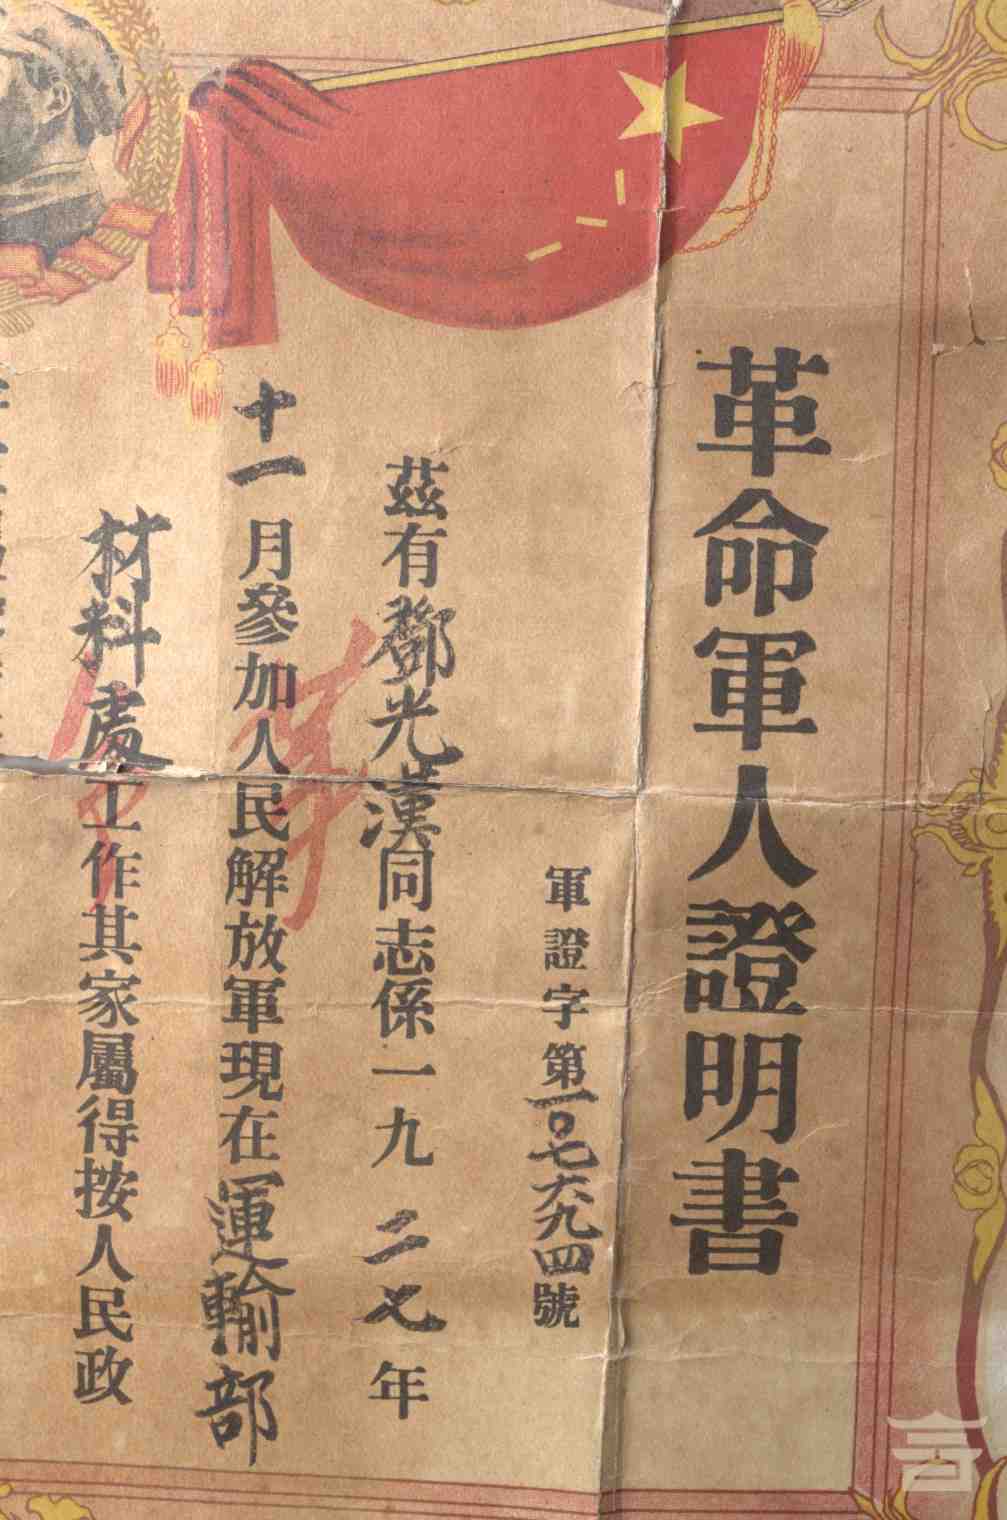 革命軍人證明書
軍證字第一〇七六九四號
茲有鄧光漢同志係一九二七年
十一月參加人民解放軍現在運輸部
材料處工作其家屬得按人民政